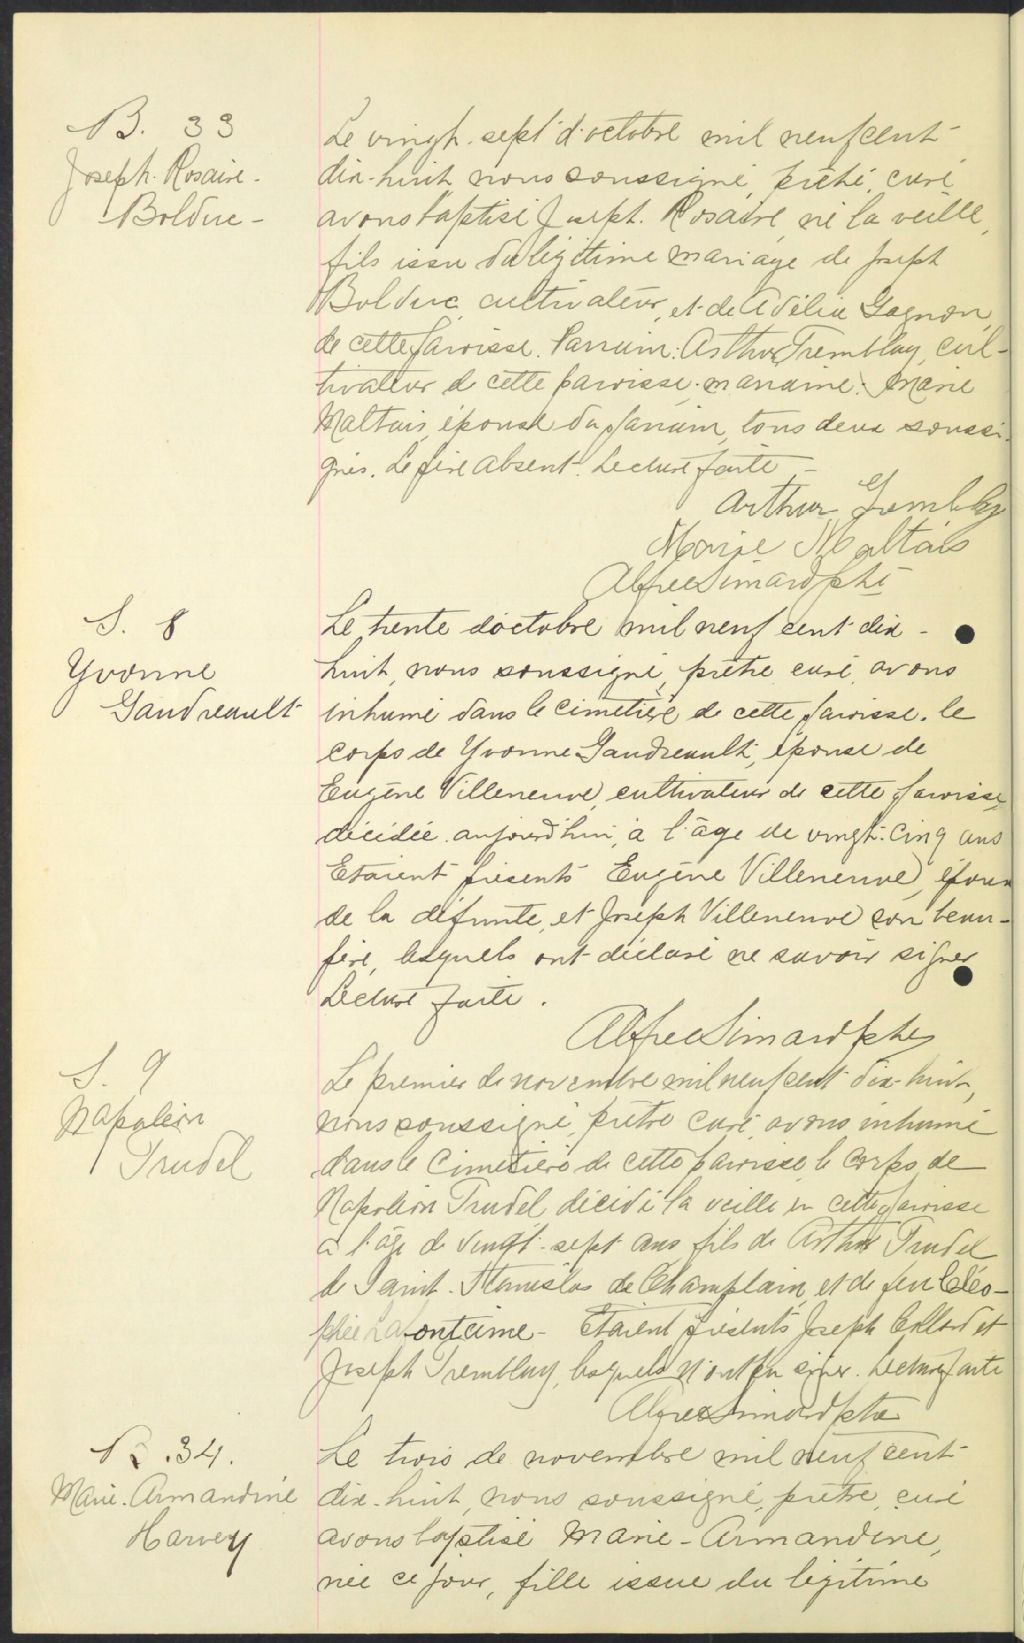 B. 33
Joseph. Rosaire -
Bolduc -
Le vingt. sept d'octobre mil neuf cent
dix-huit, nous soussigné, prêtre, curé,
avons baptisé Joseph. Rosaire, né la veille,
fils issu du légitime mariage de Joseph
Bolduc, cultivateur, et de Adélia Gagnon,
de cette paroisse. Parrain: Arthur Tremblay, cul-
tivateur de cette paroisse; marraine: Marie
Maltais, épouse du parrain, tous deux soussi-
gnés. Le père absent. Lecture faite -
Arthur Trembly
Marie Maltais
Alfred Simard ptre
S. 8
Yvonne
Gaudreault
Le trente d'octobre mil neuf cent dix-
huit, nous soussigné, prêtre curé, avons
inhumé dans le cimetière de cette paroisse. le
corps de Yvonne Gaudreault, épouse de
Eugène Villeneuve, cultivateur de cette paroisse,
décédée aujourd'hui, à l'âge de vingt-cinq ans
Etaient présents Eugène Villeneuve, époux
de la défunte, et Joseph Villeneuve son beau-
père, lesquels ont déclaré ne savoir signer
Lecture faite.
Alfred Simard ptre
S. 9
Napoléon
Trudel
Le premier de novembre mil neuf cent dix-huit,
nous soussigné, prêtre curé, avons inhumé
dans le cimetière de cette paroisse le corps de
Napoléon Trudel décédé la veille en cette paroisse
à l'âge de vingt-sept ans fils de Arthur Trudel
de Saint-Stanislas de Champlain, et de feu Cléo-
phée Lafontaine - Etaient présents Joseph et
Joseph Tremblay, lesquels n'ont pu signer. Lecture faite
Alfred Simard ptre
B. 34.
Marie. Armandine
Harvey
Le trois de novembre mil neuf cent
dix-huit, nous soussigné, prêtre, curé
avons baptisé Marie-Armandine,
née ce jour, fille issue du légitime